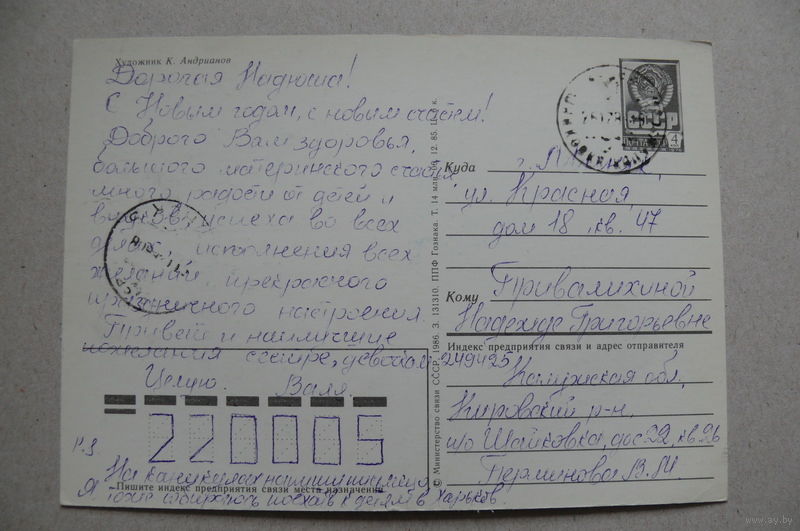 Художник К. Андрианов
Дорогая Надюша!
С Новым годом, с новым счастьем!
Доброго Вам здоровья,
большого материнского счастья
много радости от детей и
внуков, успеха во всех
делах, исполнения всех
желаний, прекрасного
праздничного настроения
Привет и наилучшие
пожелания сестре, девочкам
Целую. Валя.
220005
P.S
На каникулах напишите
Я тоже собираюсь поехать к детям в Харьков
Пишите индекс предприятия связи места назначения
© Министерство связи СССР. 1986. З. 131310. ППФ Гознака. Т. 14 млн. 06. 12. 85. Ц. 6 к.
СССР
4
Куда г. Минск
ул. Красная,
дом 18, кв. 47
Кому Привалихиной
Надежде Григорьевне
Индекс предприятия связи и адрес отправителя
249425
Калужская обл,
Кировский р-н.
п/о Шайковка, дос 22, кв 26
Перминова В.М.
www.ay.by